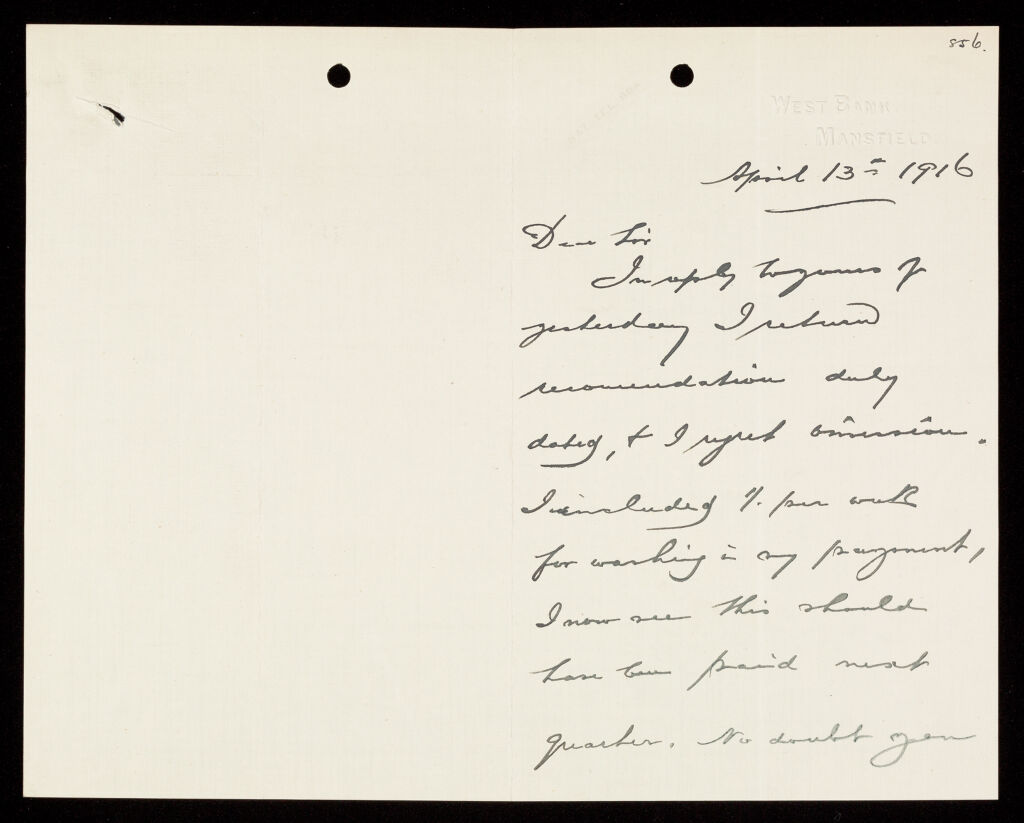 856.
WEST BANK,
MANSFIELD.
April 13th 1916
Dear Sir
In reply to yours of
yesterday I return
recomendation duly
dated, & I regret omission.
I included 1/- per week
for washing in my payment,
I now see this should
have been paid next
quarter. No doubt you